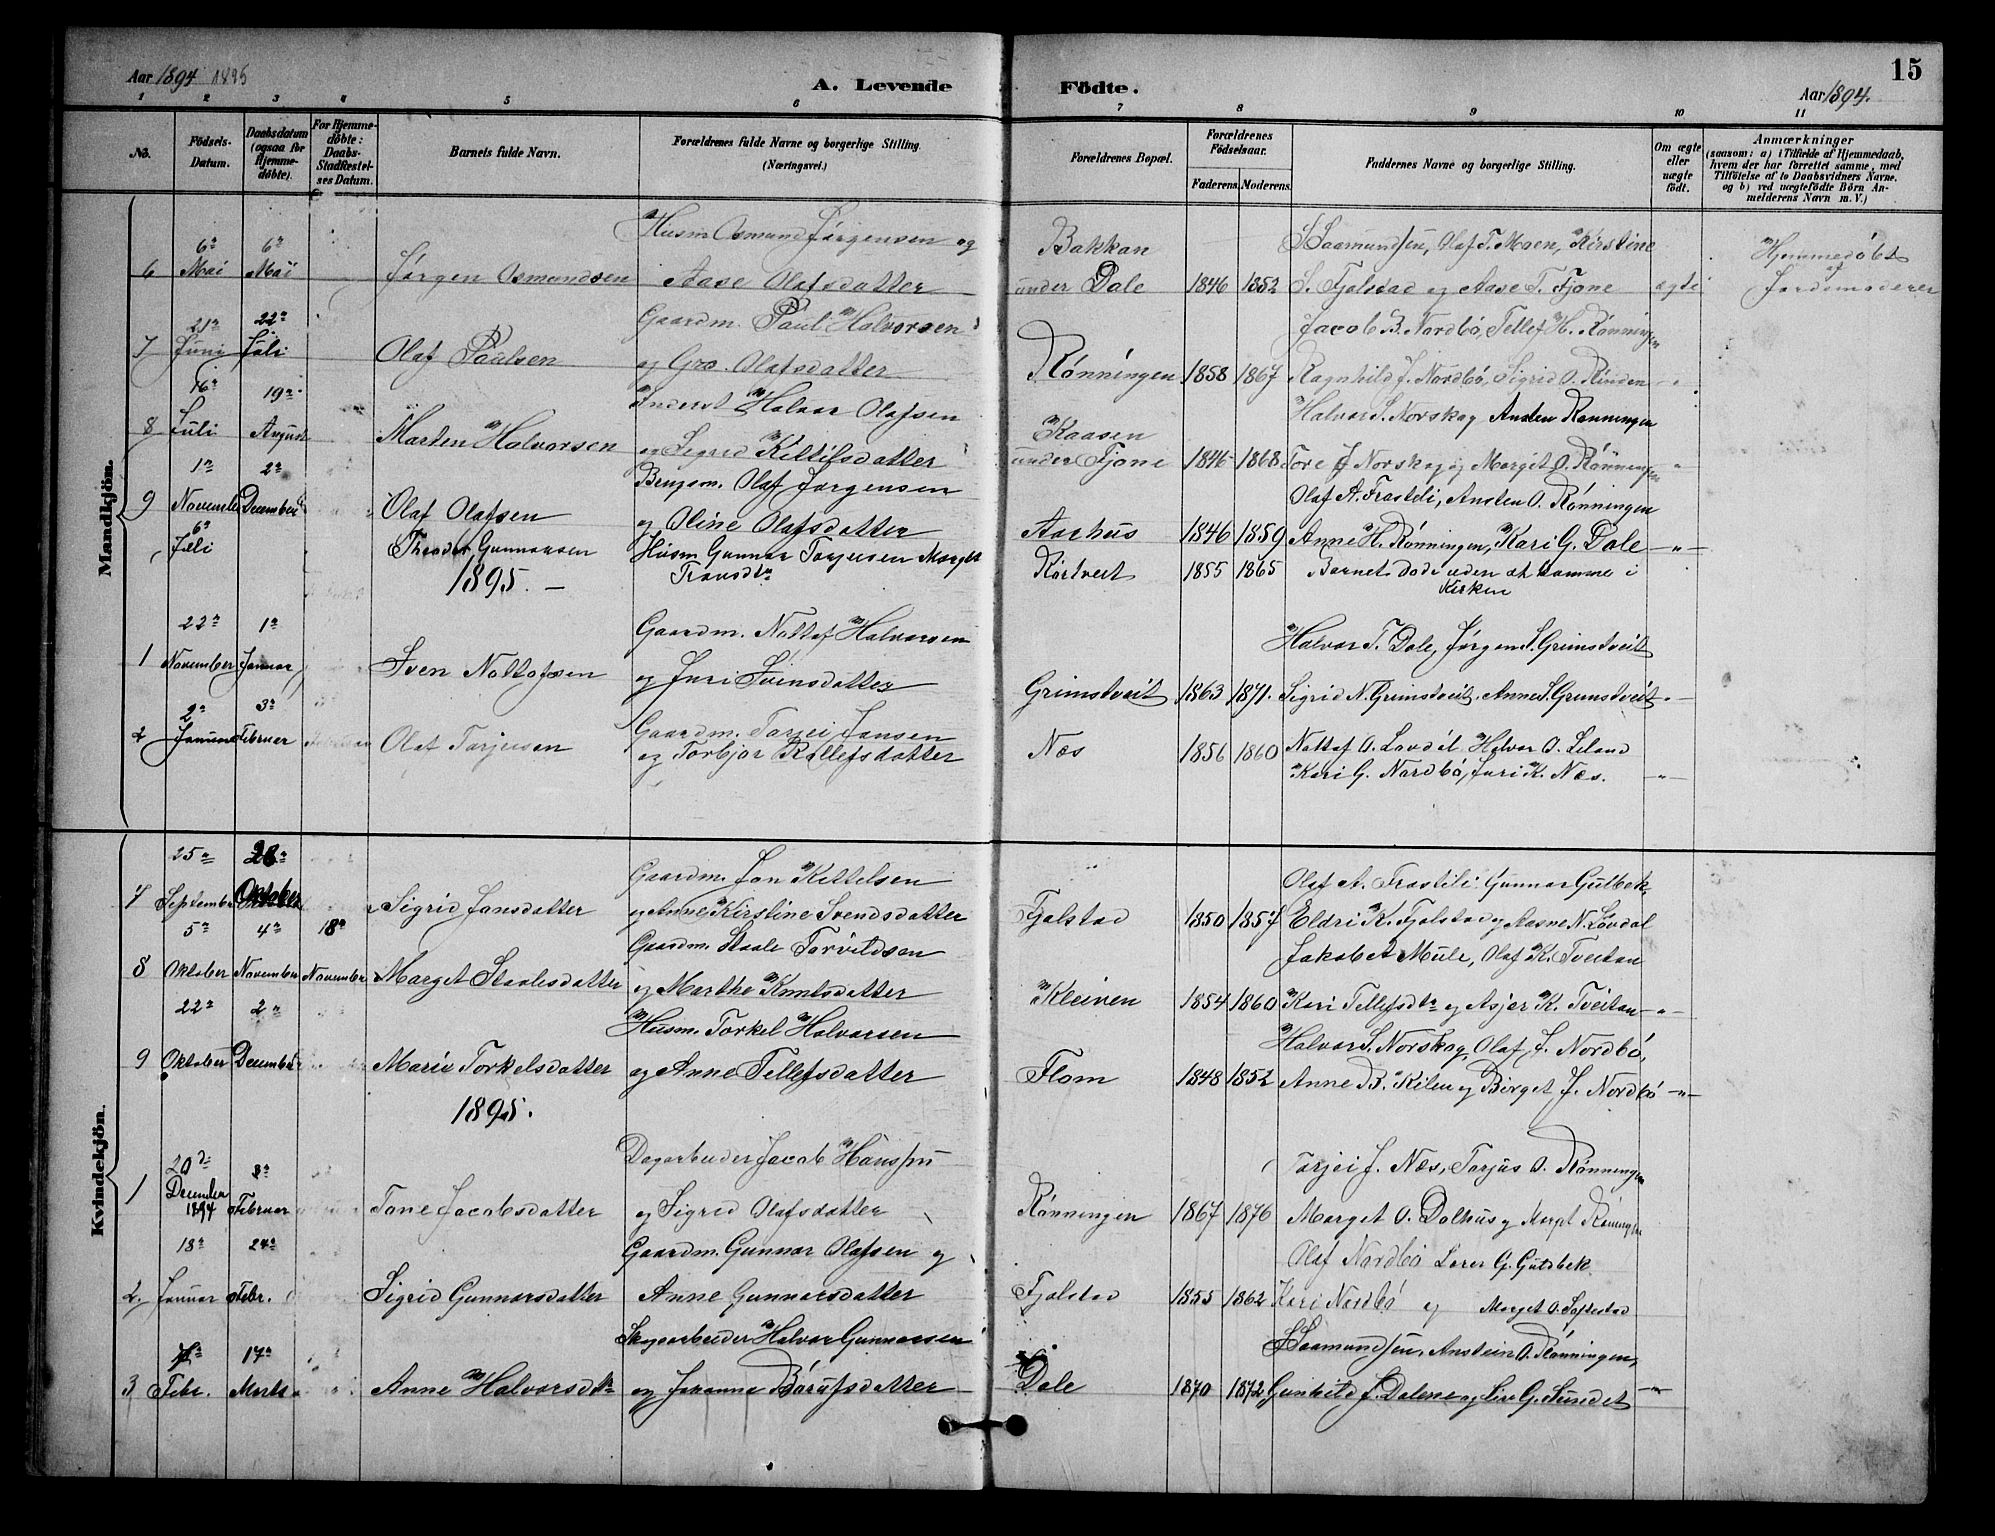 Aar 1894 1895 A. Levende Fødte. Aar 1894. 15
1 2 3 4 5 6 7 8 9 10 11
No. Fødsels-Datum. Daabsdatum (ogsaa for Hjemmedøbte). For Hjemmedøbte: Daabs-Stadfæstelses Datum. Barnets fulde Navn. Forældrenes fulde Navne og borgerlige Stilling. (Næringsvei.) Forældrenes Bopæl. Forældrenes Fødselsaar. Faderens. Moderens. Faddernes Navne og borgerlige Stilling. Om ægte eller uægte født. Anmærkninger (saasom: a) i Tilfælde af Hjemmedaab, hvem der har forrettet samme, med Tilføielse af to Daabsvidners Navne. og b) ved uægtefødte Børn Anmelderens Navn m. V.)
Mandkjön.
6te 6te Husm Osmund Jørgensen og Bakkan S Saamundsen, Olaf T. Moen, Kirstine Hjemmedøbt af
6 Mai Mai Jørgen Osmundsen Aase Olafsdatter under Dale 1846 1852 S. Fjalstad og Aase T. Fjone ægte Jordemoderen
21de 22de Gaardm. Paul Halvorsen Jacob B. Nordbø, Tellef H. Rønningen
7 Juni Juli Olaf Paulsen og Gro Olafsdatter Rønningen 1858 1867 Ragnhild J. Nordbø, Sigrid O. Rinden -"-
16de 19de Inderst Halvor Olafsen Kaasen Halvor S. Norskog Ansten Rønningen
8 Juli August Marten Halvorsen og Sigrid Kittilsdatter under Fjone 1846 1868 Tore J Norskog og Margit O. Rønningen "
1te 2de Brugsm. Olaf Jørgensen Olaf A. Frastili, Ansten O. Rønningen
9 November December Olaf Olafsen og Oline Olafsdatter Aarhus 1846 1859 Anne H. Rønningen, Kari G. Dale -"-
6te Juli Theodor Gunnarsen Husm Gunnar Torjusen Margit Rørtveit 1855 1865 Barnet døde uden at komme i
1895. - Kirken
22de 1te Gaardm. Nottof Halvorsen Halvor T. Dale, Jørgen S. Grimstveit
1 November Januar Sven Nottofsen og Juri Svensdatter Grimstveit 1863 1871. Sigrid N. Grimstveit. Anne S. Grimstveit -"-
2de 3de Gaardm. Tarjei Jansen Nottof O. Lovdal Halvor O. Leland
2 Januar Februar Olaf Tarjeisen og Torbjør Rollefsdatter Næs 1856 1860 Kari G. Nordbø, Juri K. Næs. -"-
Kvindekjön.
25de 28de Gaardm. Jon Kittelsen Olaf A. Frastili Gunnar Gutbek,
7 September Oktober Sigrid Jonsdatter og Anne Kirstine Svendsdatter Fjalstad 1850 1857 Eldri K. Fjalstad og Aasne N. Løvdal
5te 4de 18de Gaardm. Staale Torvildsen Jakob A Mule, Olaf K. Tveitan
8 Oktober November November Marget Staalesdatter og Marthe Knutsdatter Kleiven 1854 1860 Kari Tellefsdtr og Asjer K. Tveitan -"-
22de 2de Husm. Torkel Halvorsen Halvor S. Norskog, Olaf J. Nordbø,
9 Oktober December Marie Torkelsdatter og Anne Tellefsdatter Flom 1848 1852 Anne B. Kilen og Birget J. Nordbø -"-
1895.
20de 3de Dagarbeider Jacob Hansen Tarjei J. Næs, Tarjus O. Rønningen
1 December 1894 Februar Tone Jacobsdatter og Sigrid Olafsdatter Rønningen 1867 1876 Marget O. Dalhus og Margt Rønningen
18de 24de Gaardm. Gunnar Olafsen og Olaf Nordbø Larer G. Gutsbek
2. Januar Febr. Sigrid Gunnarsdatter Anne Gunnarsdatter Fjalstad 1855 1862 Kari Nordbø og Marget O. Softestad
17de Skogarbeider Halvor Gunnarsen S Saamundsen, Anstein O. Rønningen,
3 Febr. Marts Anne Halvorsdtr og Johanne Bårufsdatter Dale 1870 1872 Gunhild J. Dalene og Liv G. Sundet -"-